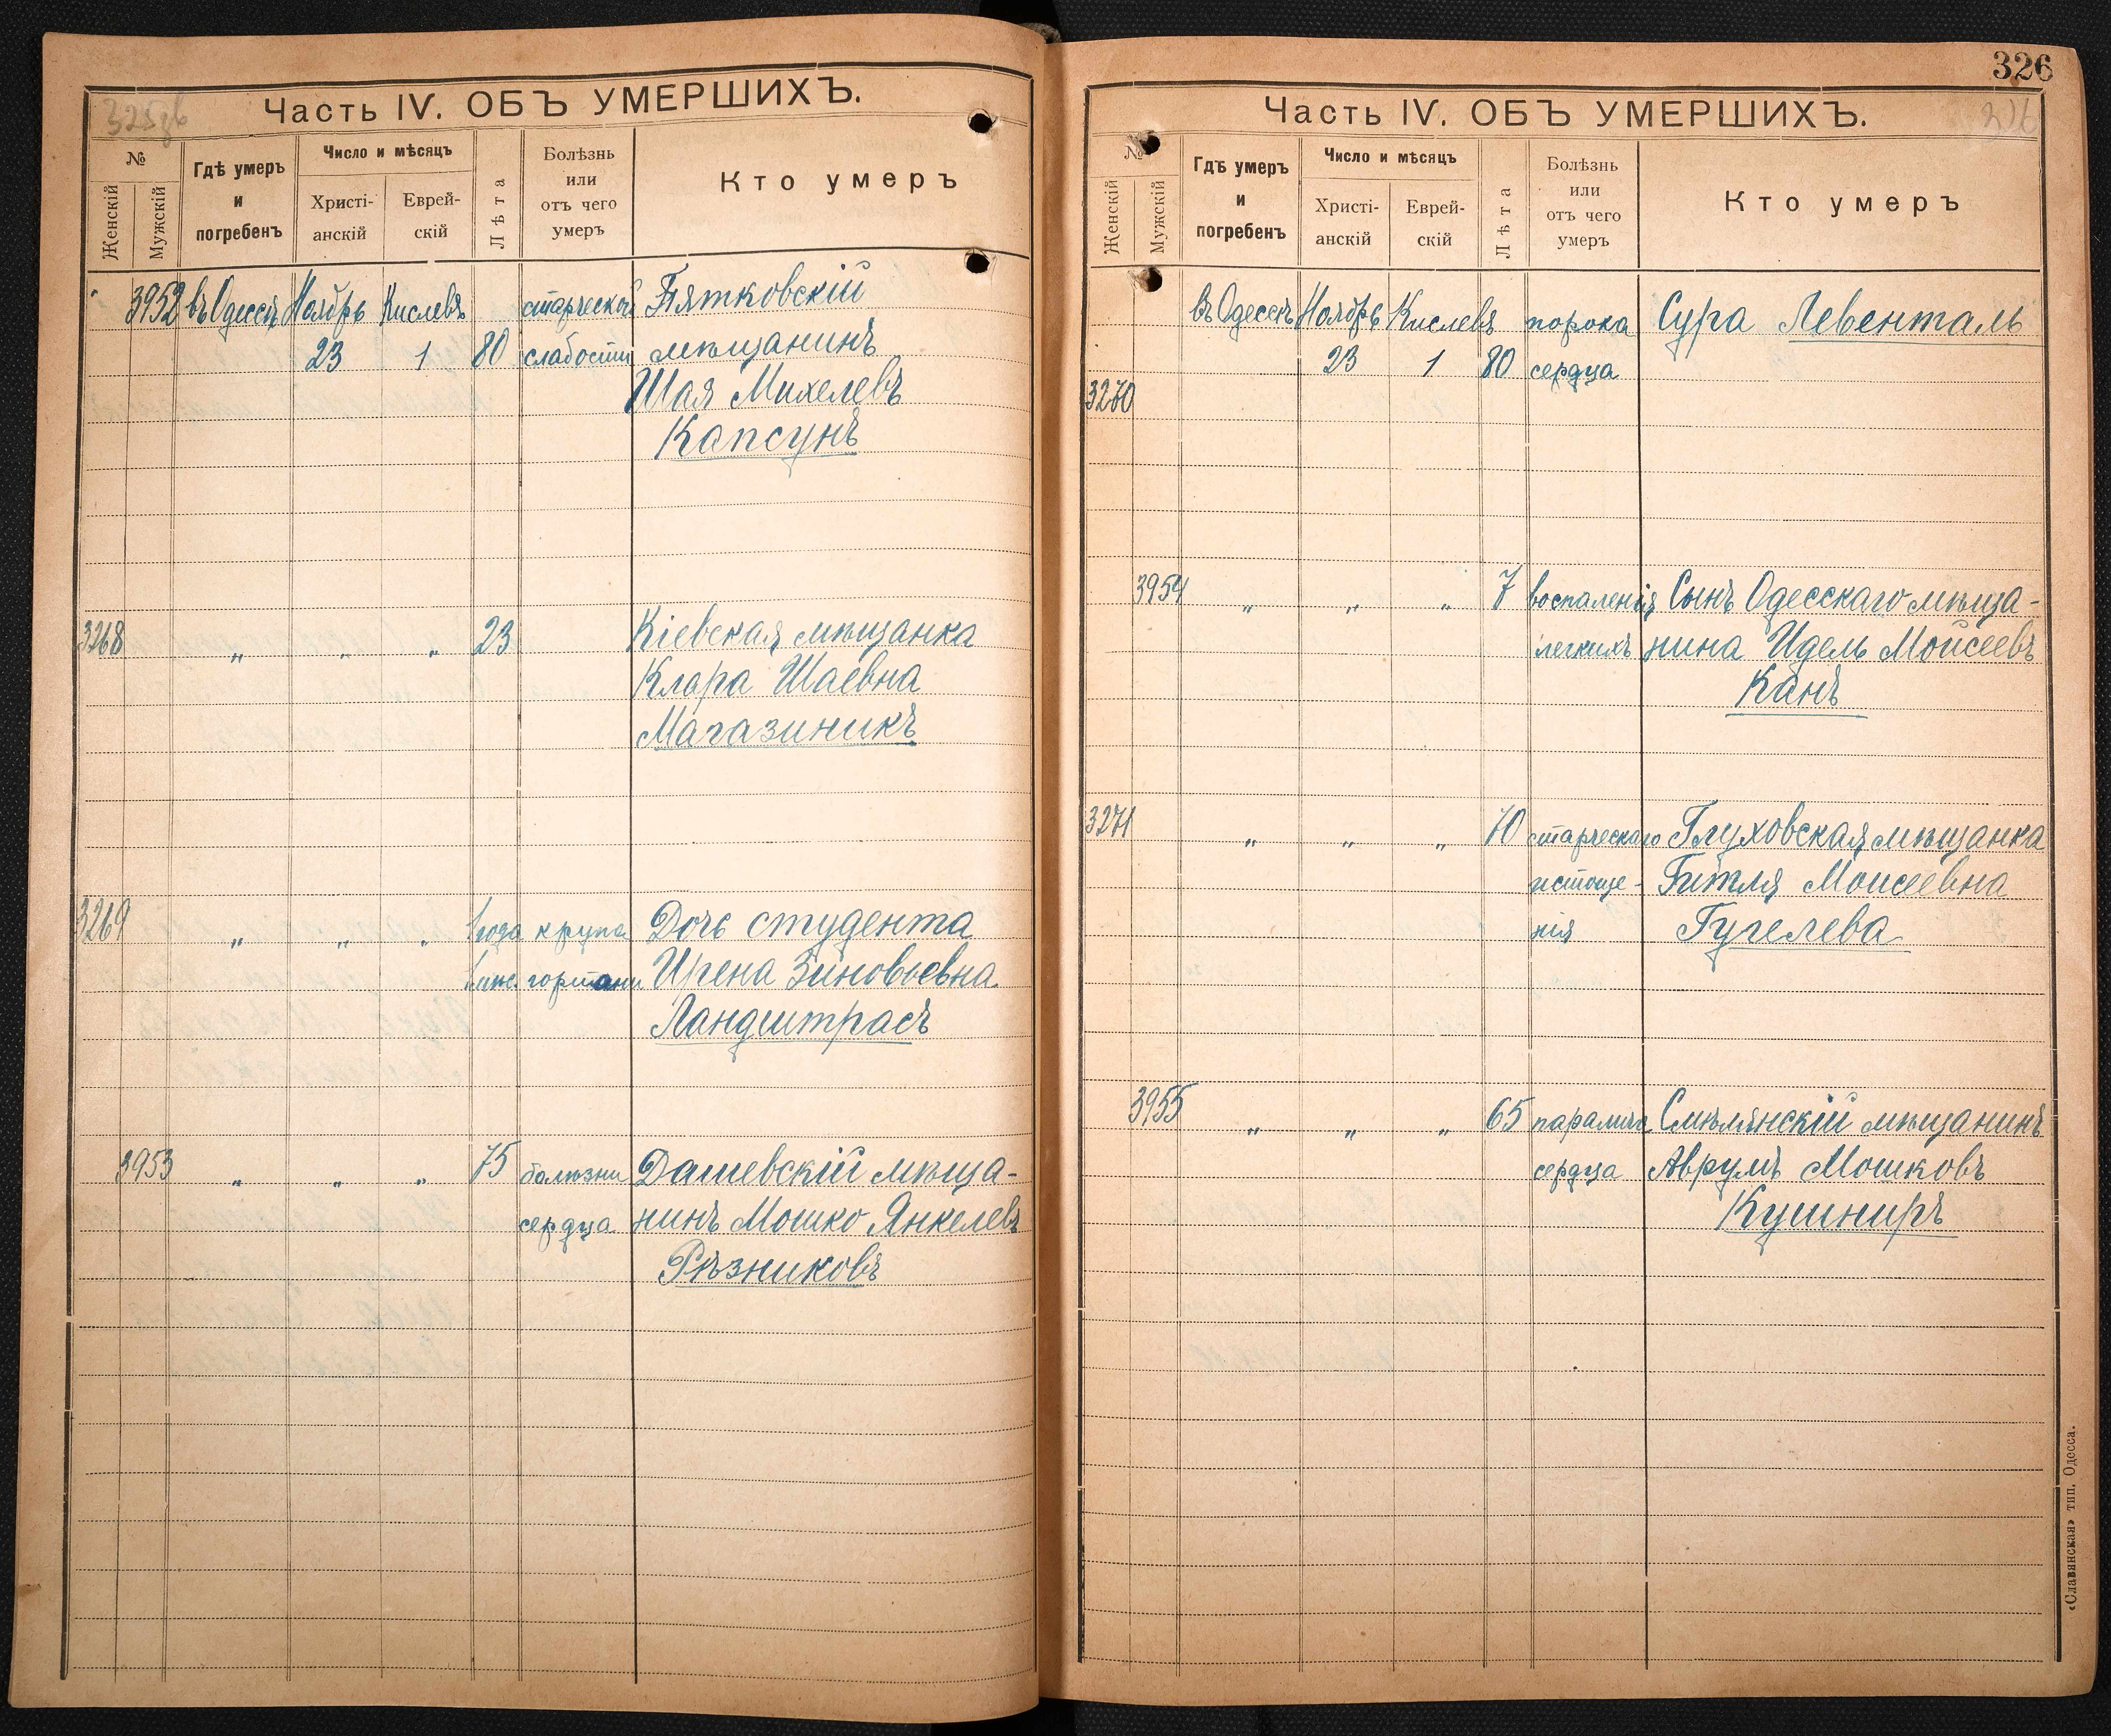 325об
Часть IV. ОБЪ УМЕРШИХЪ.
№
Женскій
Мужскій
Гдѣ умеръ
и
погребенъ
Число и мѣсяцъ
Христі-
анскій
Еврей-
скій
Лѣта
Болѣзнь
или
отъ чего
умеръ
Кто умеръ
3952 въ Одессѣ Ноябрь Кислевъ старческой Пятковскій
23 1 80 слабости мѣщанинъ
Шая Михелевъ
Капсунъ
3268 „ „ „ 23 Кіевская мѣщанка
Клара Шаевна
Магазиникъ
3269 „ „ „ 1 года крупа Дочь студента
1 мѣс. гортани Ирена Зиновьевна
Ландштрасъ
3953 „ „ „ 75 болѣзни Дашевскій мѣща-
сердца нинъ Мошко Янкелевъ
Рѣзниковъ
326
326
Часть IV. ОБЪ УМЕРШИХЪ.
№
Женскій
Мужскій
Гдѣ умеръ
и
погребенъ
Число и мѣсяцъ
Христі-
анскій
Еврей-
скій
Лѣта
Болѣзнь
или
отъ чего
умеръ
Кто умеръ
въ Одессѣ Ноябрь Кислевъ порока Сура Левенталь
23 1 80 сердца
3270
3954 „ „ „ 7 воспаленія Сынъ Одесскаго мѣща-
легкихъ нина Идель Мойсеевъ
Канъ
3271 „ „ „ 70 старческаго Глуховская мѣщанка
истоще- Гитля Моисеевна
нія Гугелева
3955 „ „ „ 65 паралича Смѣлянскій мѣщанинъ
сердца Аврумъ Мошковъ
Кушниръ
«Славянская» тип. Одесса.